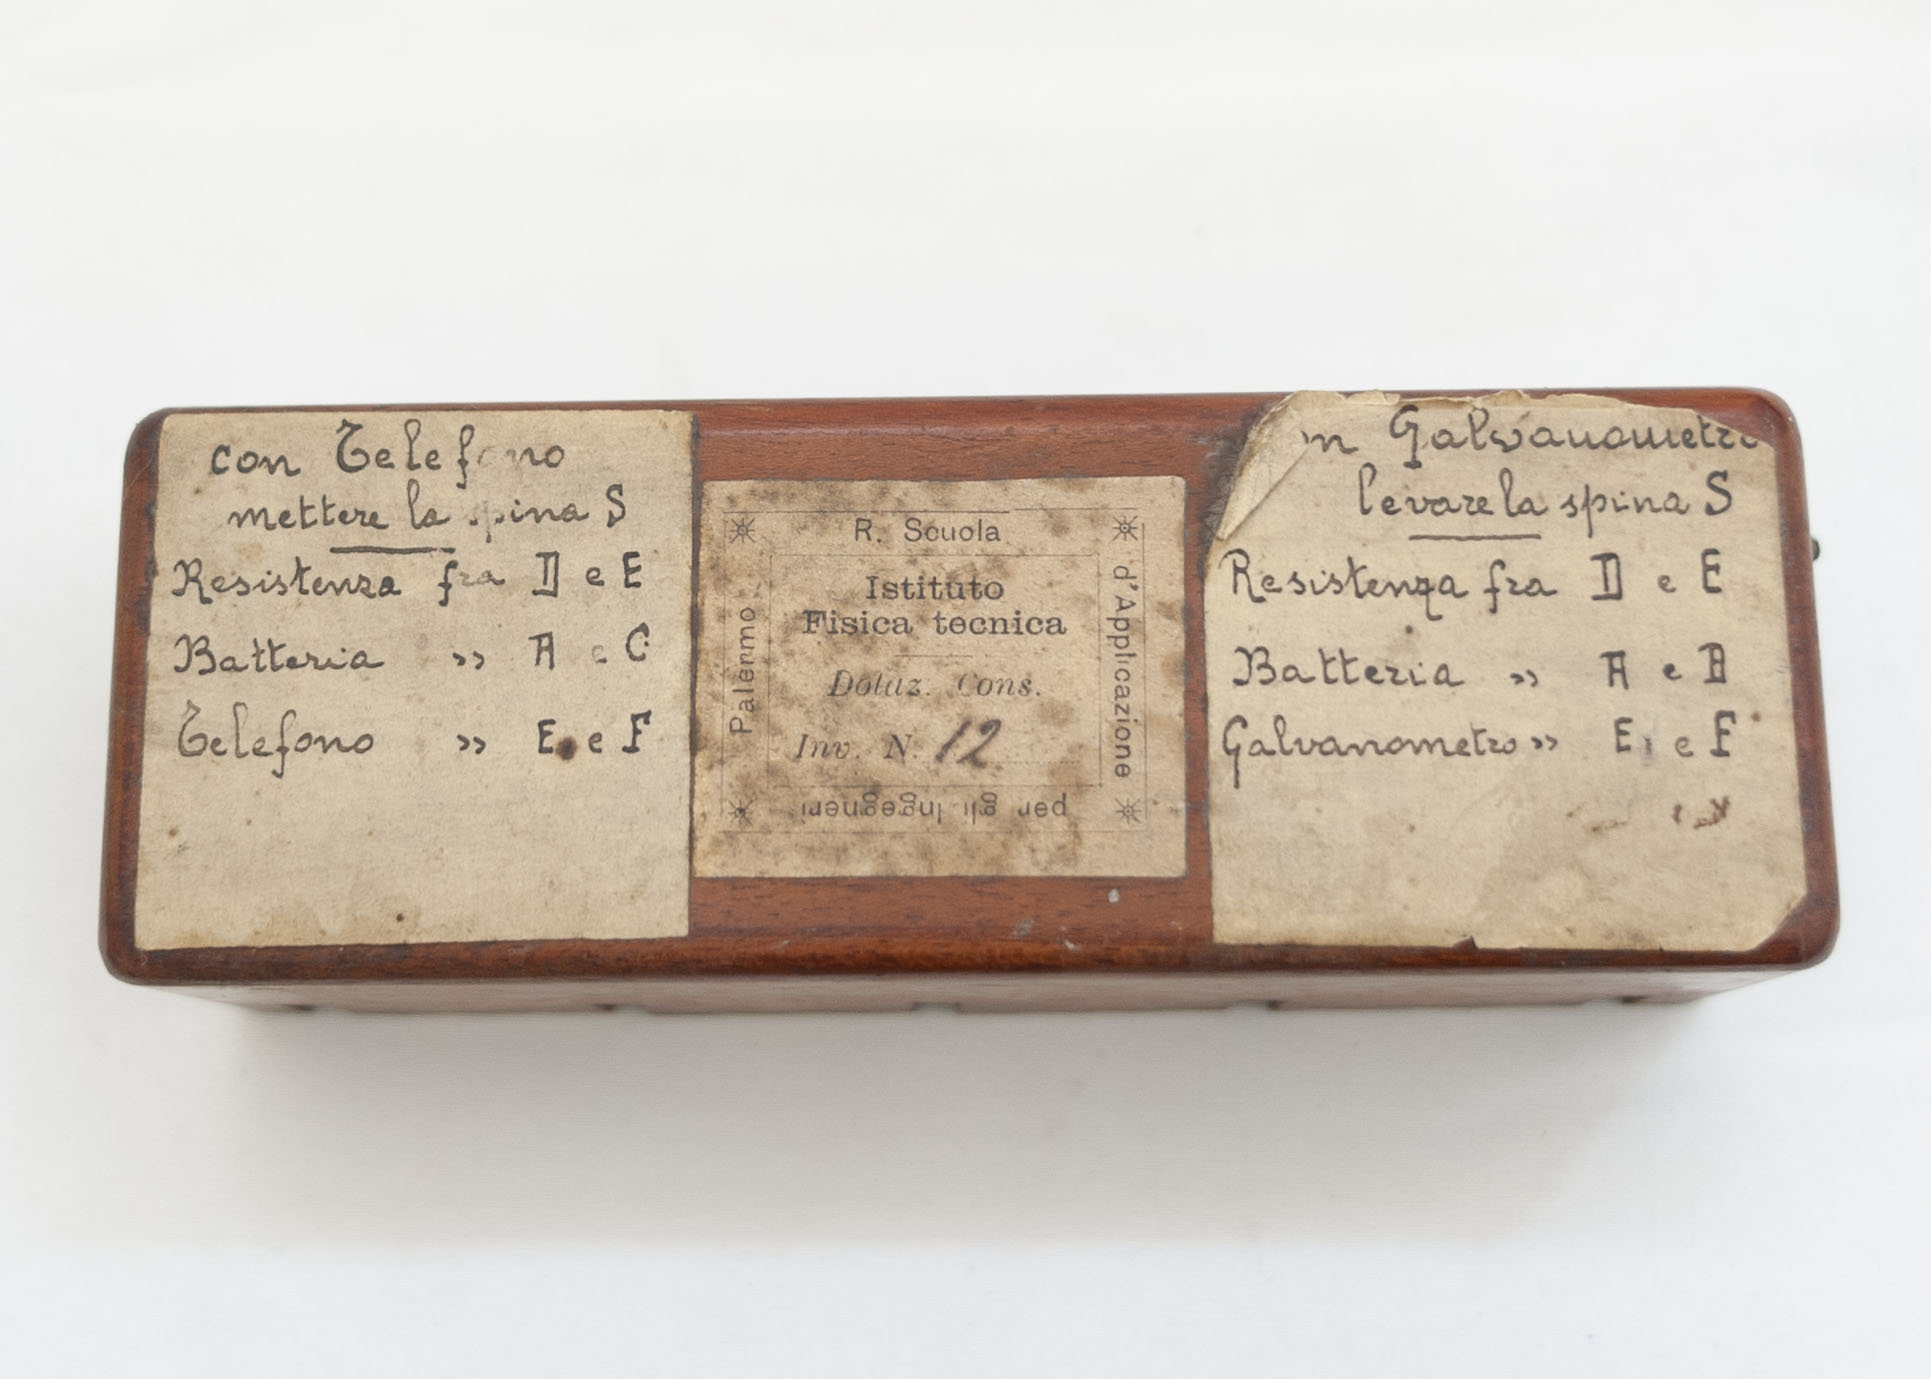 con Telefono
mettere la spina S
Resistenza fra D e E
Batteria » A e C
Telefono » E e F
R. Scuola
d'Applicazione
per gli Ingegneri
Palermo
Istituto
Fisica tecnica
Dotaz. Cons.
Inv. N. 12
Galvanometro
levare la spina S
Resistenza fra D e E
Batteria » A e B
Galvanometro » E e F